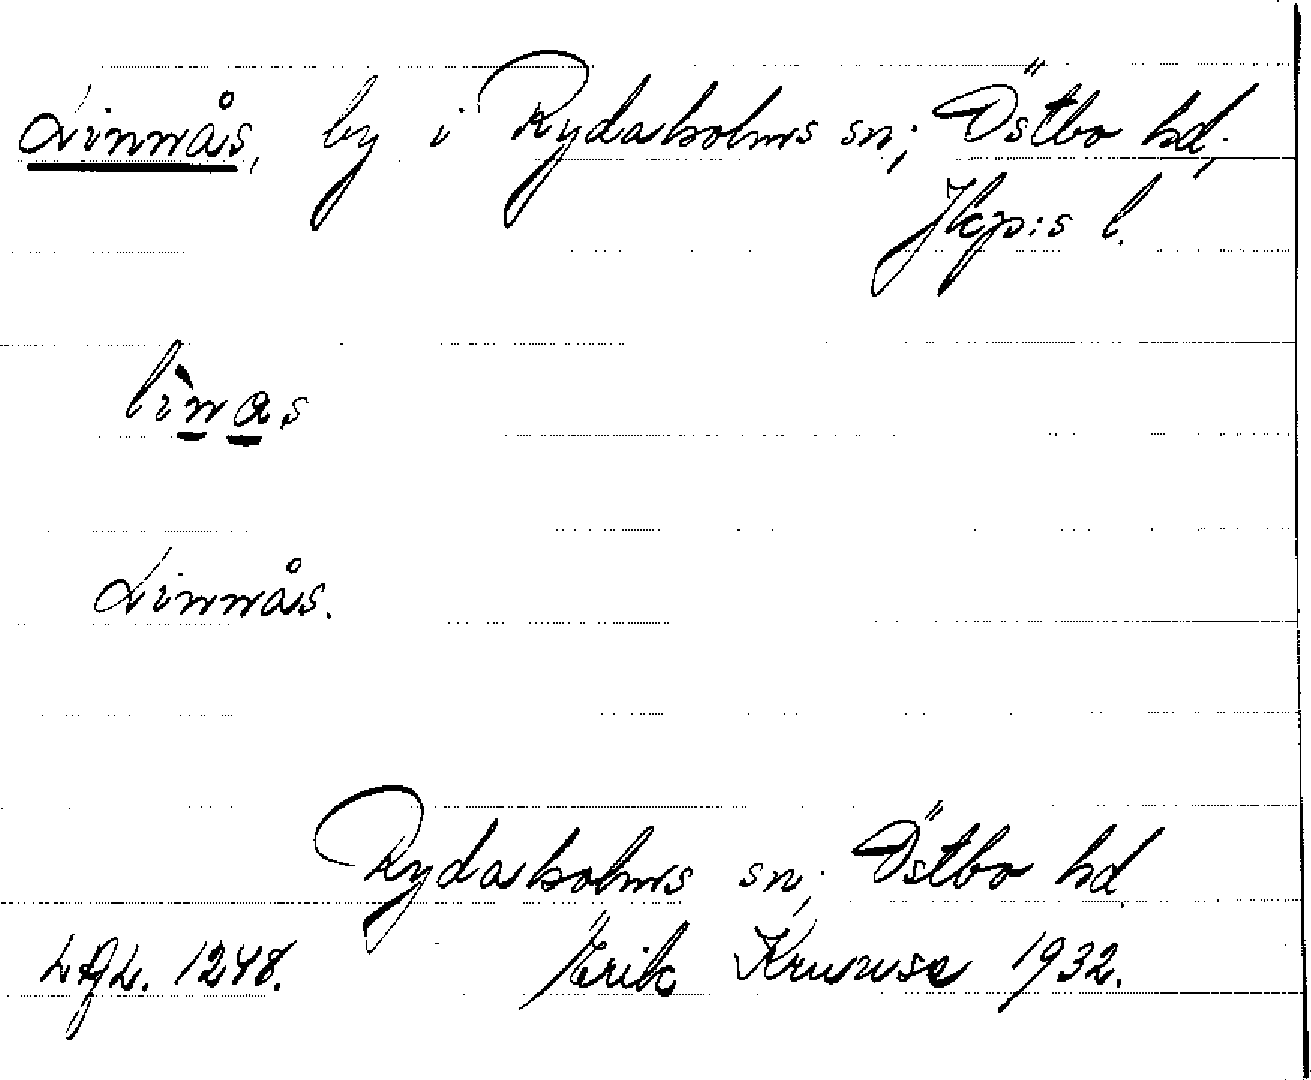 Linnås, by i Rydaholms sn; Östbo hd;
Jkp:s l.
lìnas
Linnås.
Rydaholms sn; Östbo hd,
LAL. 1248. Erik Kruuse 1932.